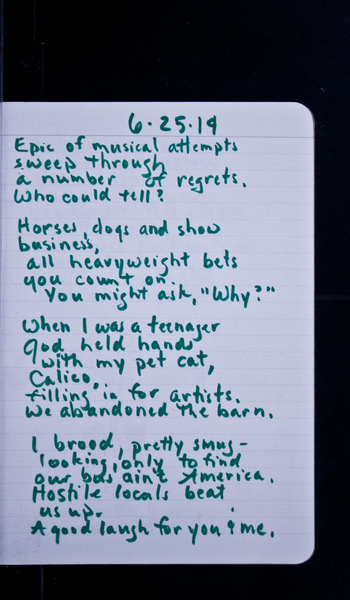 6.25.19
Epic of musical attempts
sweep through
a number of regrets.
Who could tell?
Horses, dogs and show
business,
all heavyweight bets
you count on.
You might ask, "Why?"
When I was a teenager
God held hands
with my pet cat,
Calico,
filling in for artists.
We abandoned the barn.
I brood, pretty smug-
looking, only to find
our bus ain't America.
Hostile locals beat
us up.
A good laugh for you & me.